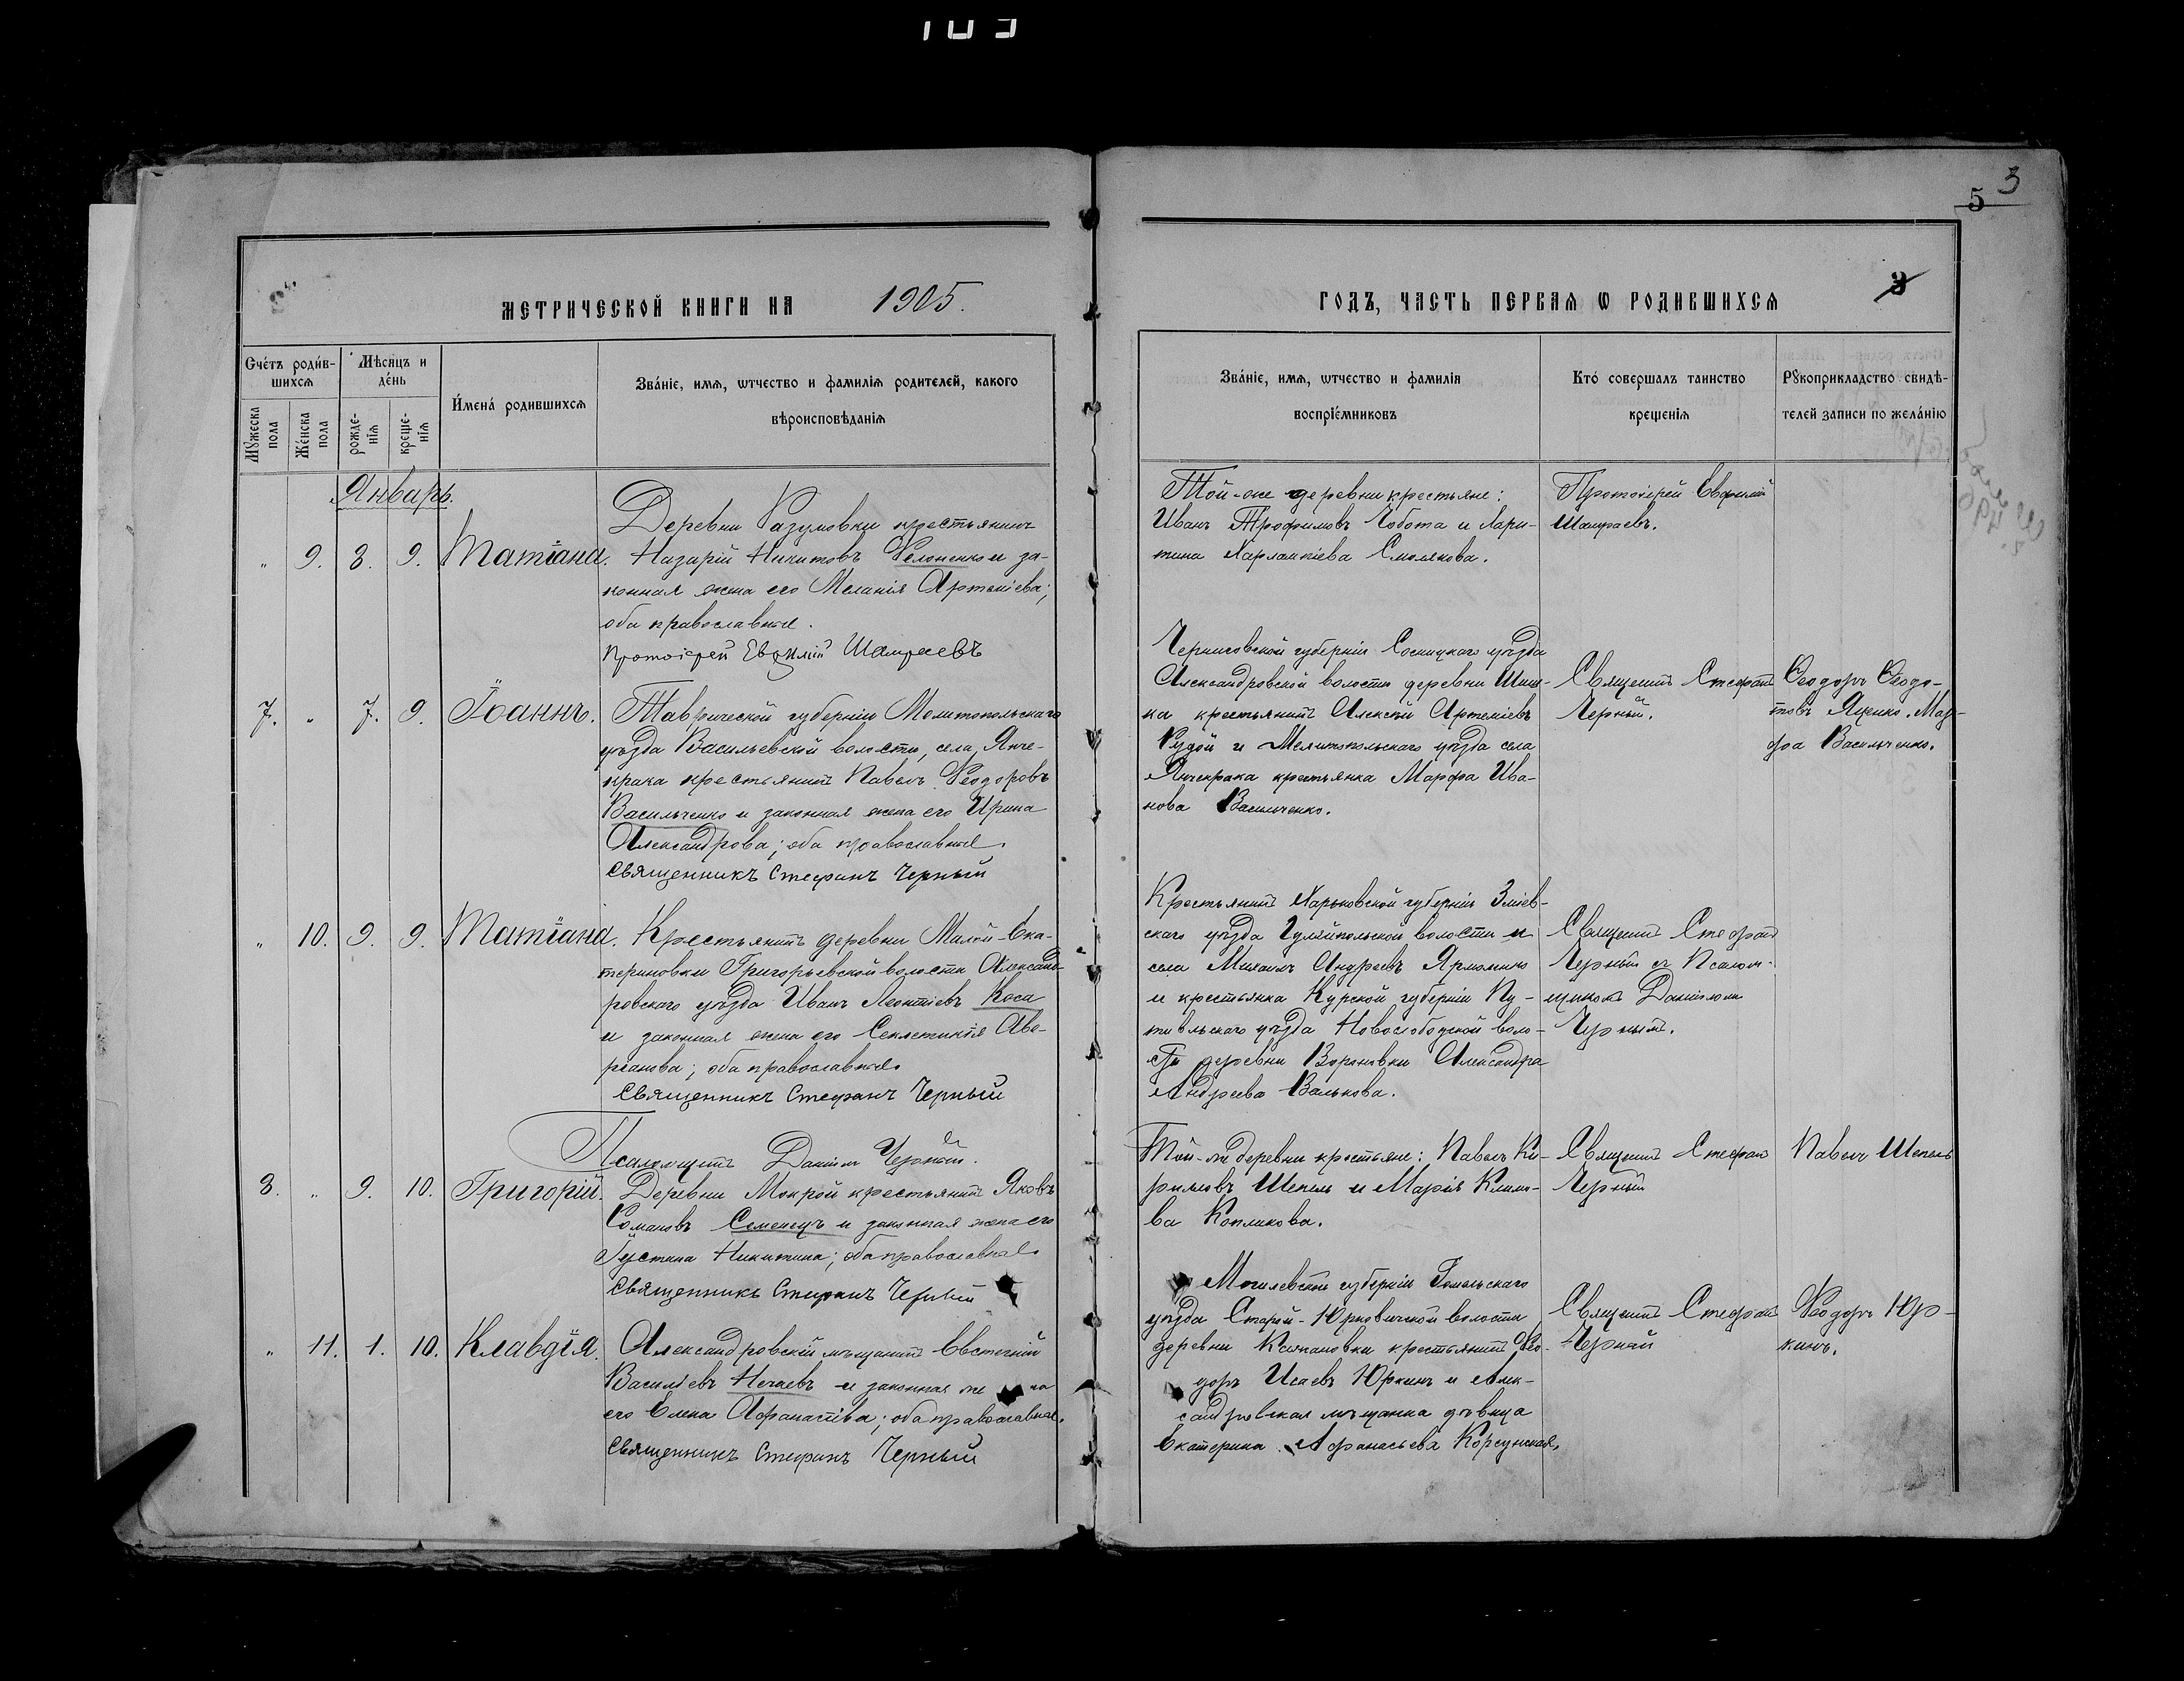 109
3
5
МЕТРИЧЕСКОЙ КНИГИ НА 1905.
ГОДЪ, ЧАСТЬ ПЕРВАѦ Ѡ РОДИВШИХСѦ
3
Счéтъ роди́в-
шихсѧ
Мꙋ́жеска пола
Же́нска пола
Мѣ́сѧцъ и
де́нь
рожде-
нїѧ
креще-
нїѧ
И́мена́ родившихсѧ
Зва́нїе, имѧ, ѡтчество и фамилїѧ родителей, какого
вѣроисповѣданїѧ
Зва́нїе, имѧ, ѡтчество и фамилїѧ
воспрїе́мниковъ
Кто́ совершалъ таинство
крещенїѧ
Рꙋкоприкладство свидѣ-
телей записи по жела́нїю
Январь.
„ 9. 8. 9. Татіана.
Деревни Разумовки крестьянинъ
Назарій Никитовъ и за-
конная жена его Меланія Артеміева;
оба православные.
Протоіерей Евфимій Шамраевъ
Той-же деревни крестьяне:
Иванъ Трофимовъ Чобота и Хари-
тина Харлампіева Смолякова.
Протоіерей Евфимій
Шамраевъ.
7. „ 7. 9. Іоаннъ.
Таврической губерніи Мелитопольскаго
уѣзда Васильевской волости, села Янче-
крака крестьянинъ Павелъ Ѳеодоровъ
Васильченко и законная жена его Ирина
Александрова; оба православные.
Священникъ Стефанъ Черный
Черниговской губерніи Сосницкаго уѣзда
Александровской волости деревни
ка крестьянинъ Алексѣй Артеміевъ
Рудой и Мелитопольскаго уѣзда села
Янчекрака крестьянка Марфа Ива-
нова Васильченко.
Священникъ Стефанъ
Черный.
Ѳеодоръ Ѳеодо-
товъ Яценко. Мар-
фа Васильченко.
„ 10. 9. 9. Татіана.
Крестьянинъ деревни Малой-Ека-
териновки Григорьевской волости Александ-
ровскаго уѣзда Иванъ Леонтіевъ Коса
и законная жена его Секлетикія Аве-
ріанова; оба православные.
Священникъ Стефанъ Черный
Псаломщикъ Даніилъ Черный.
Крестьянинъ Харьковской губерніи Зміев-
скаго уѣзда волости и
села Михаилъ Андреевъ Ярмоленко
и крестьянка Курской губерніи Пу-
тивльскаго уѣзда Новослободской воло-
сти деревни Вороновки Александра
Андреева Валькова.
Священникъ Стефанъ
Черный съ Псалом-
щикомъ Даніиломъ
Чернымъ.
8. „ 9. 10. Григорій.
Деревни Мокрой крестьянинъ Яковъ
Романовъ Семенецъ и законная жена его
Іустина Никитина; оба православные.
Священникъ Стефанъ Черный
Той-же деревни крестьяне: Павелъ Ки-
рилловъ Шепель и Марія Климо-
ва Копликова.
Священникъ Стефанъ
Черный
Павелъ Шепель
„ 11. 1. 10. Клавдія.
Александровскій мѣщанинъ Евстигній
Василіевъ Нечаевъ и законная же на
его Елена Афанасіева; оба православные.
Священникъ Стефанъ Черный
Могилевской губерніи Гомельскаго
уѣзда Старой-Юрковичской волости
деревни крестьянинъ Ѳео-
доръ Исаевъ Юркинъ и Алек-
сандровская мѣщанка дѣвица
Екатерина Афанасьева Корсунская.
Священникъ Стефанъ
Черный
Ѳеодоръ Юр-
кинъ.